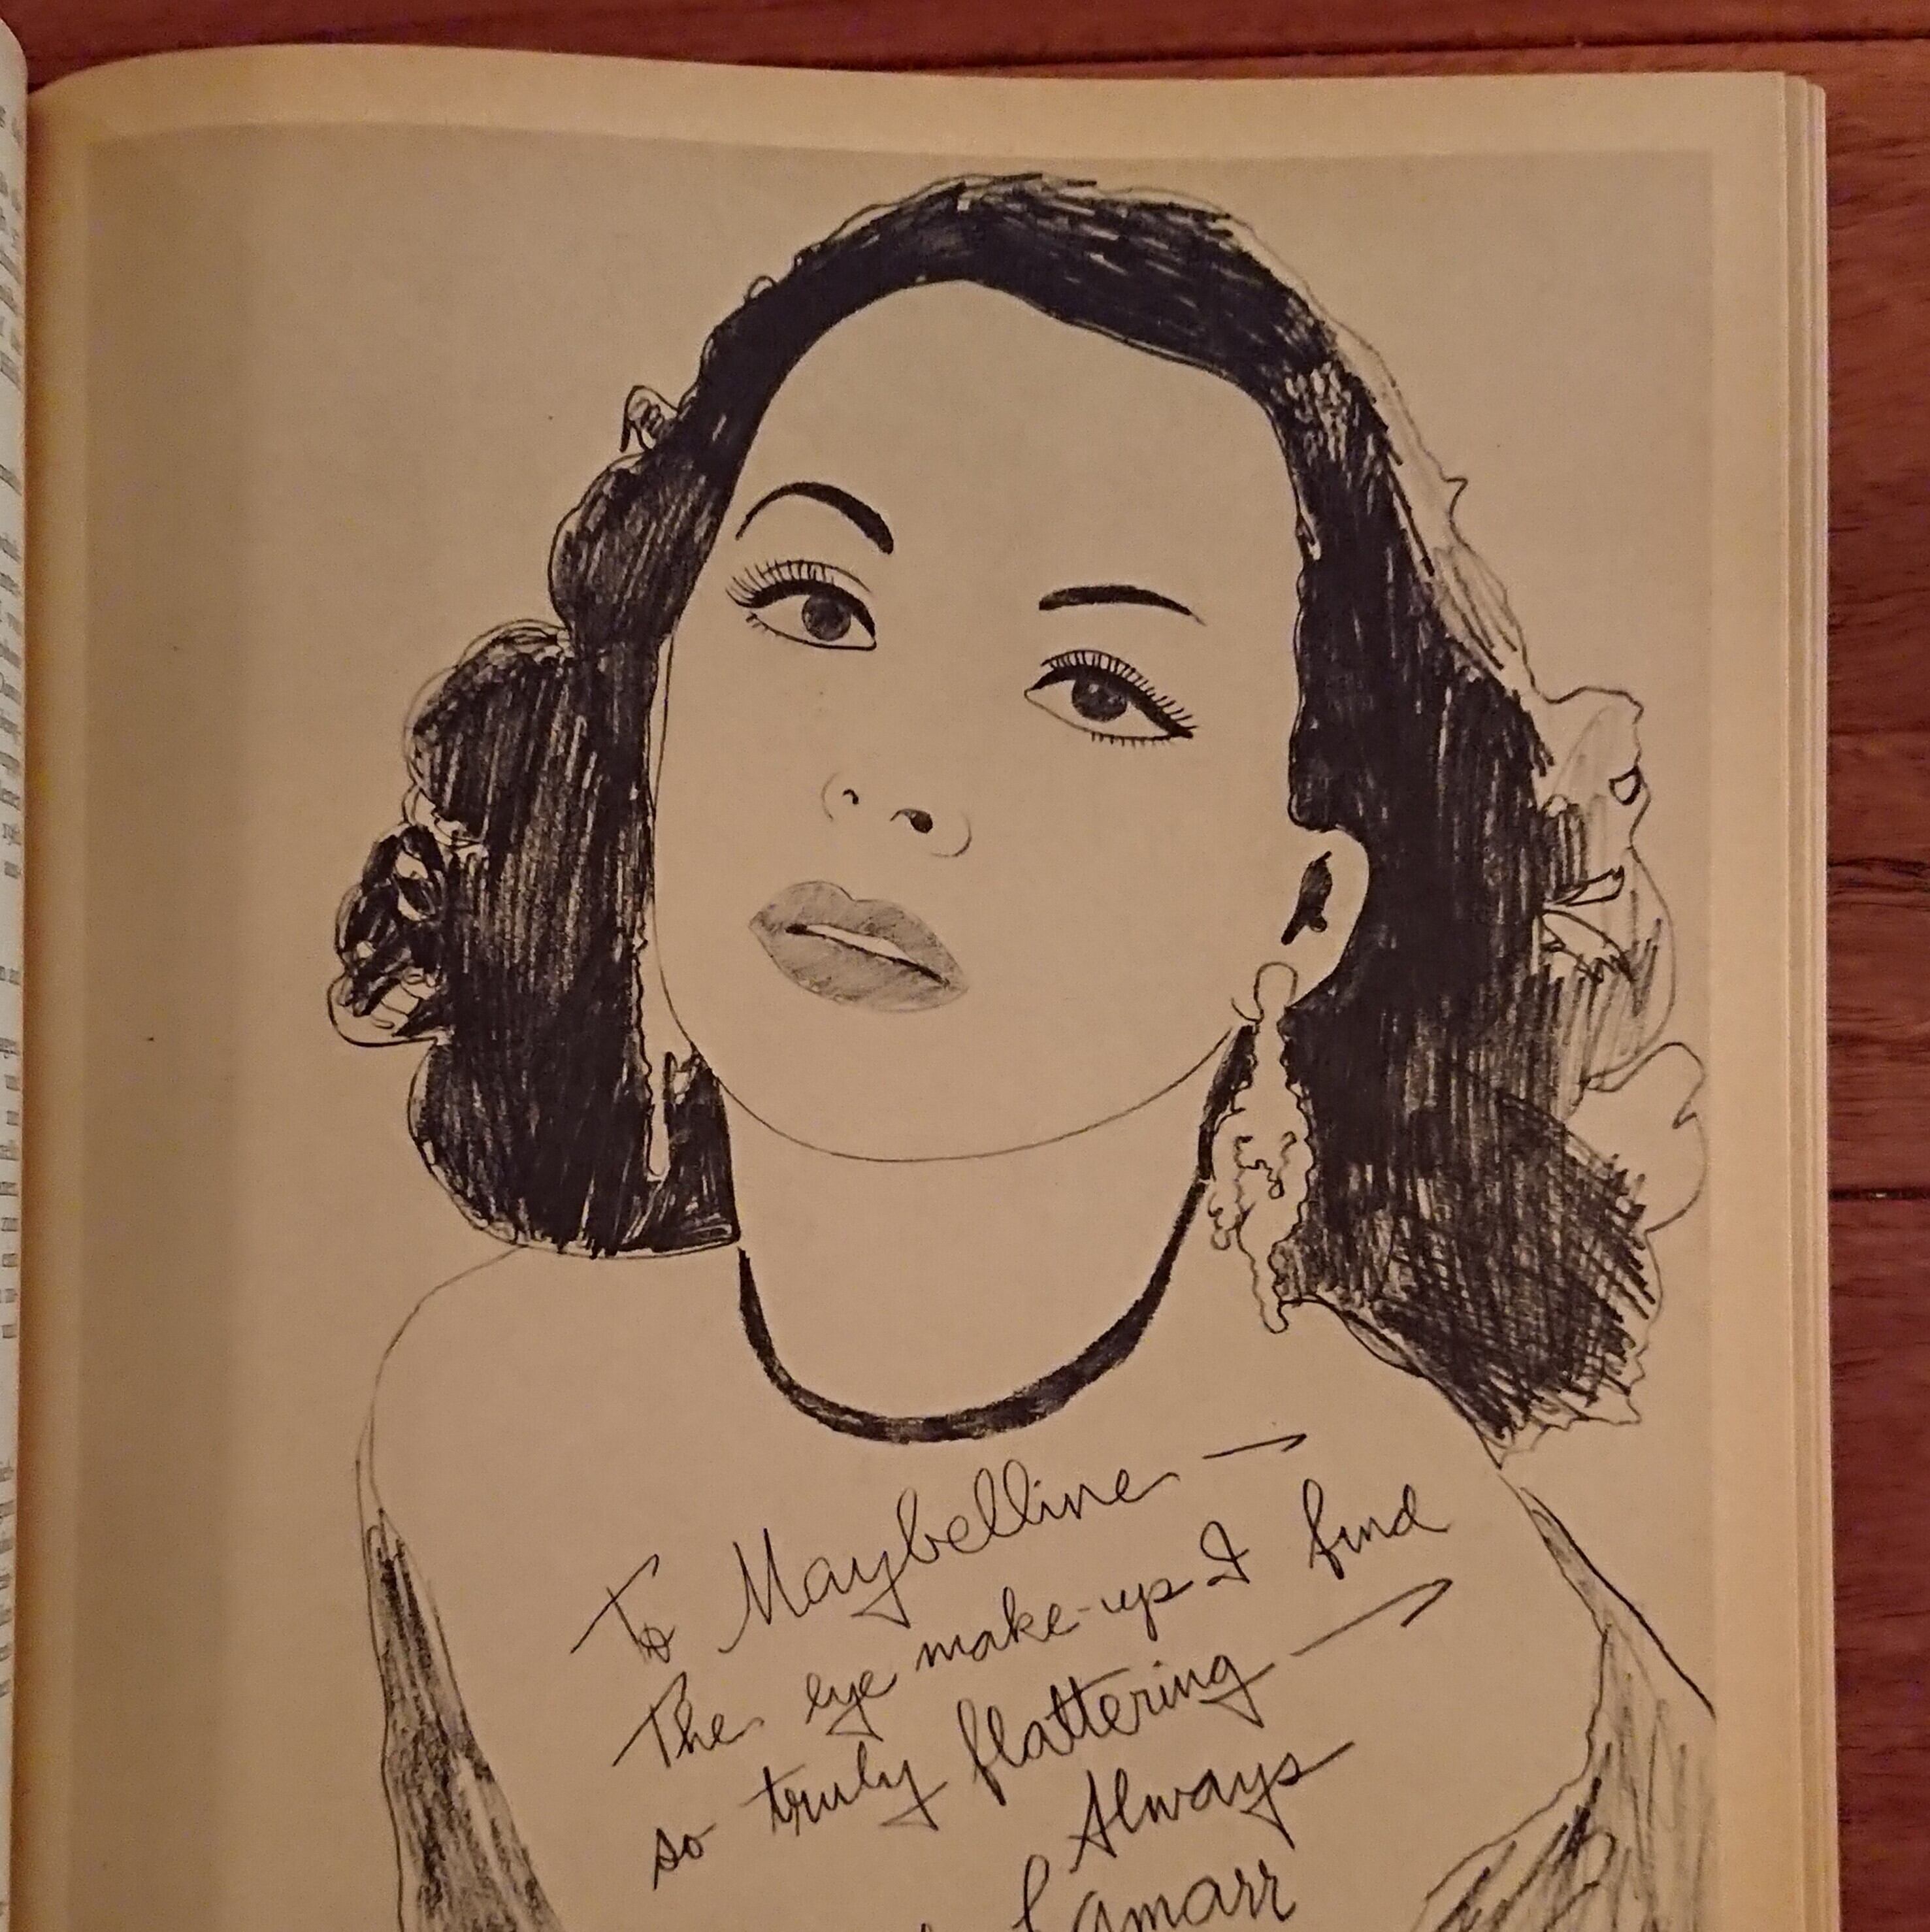 To Maybelline —
The eye make-up I find
so truly flattering —
Always
Lamarr